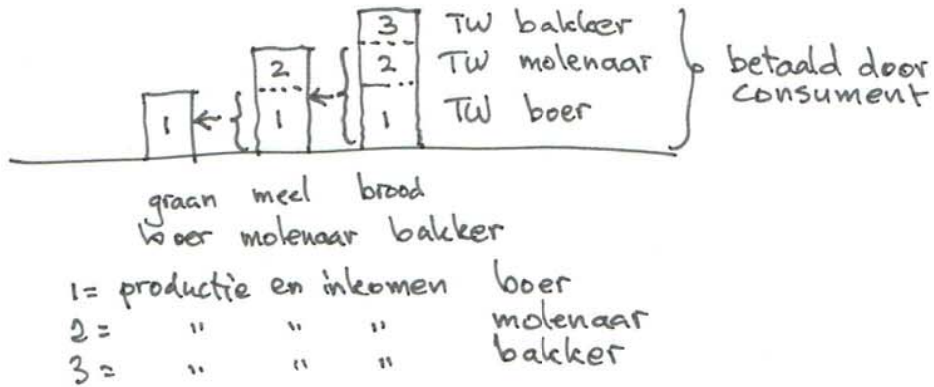 3 TW bakker
2 2 TW molenaar betaald door
1 1 1 TW boer consument
graan meel brood
boer molenaar bakker
1= productie en inkomen boer
2= " " " molenaar
3= " " " bakker